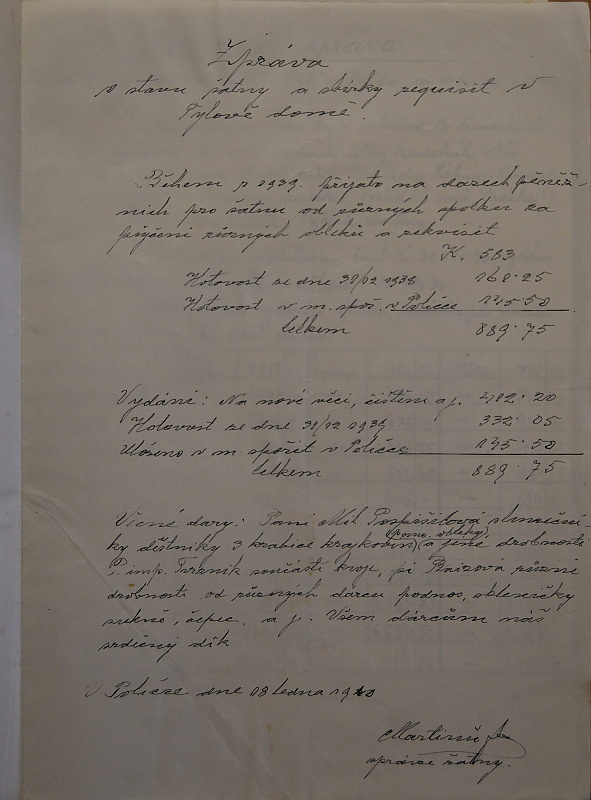 Zpráva
o stavu šatny a sbírky requisit v
Tylově domě.
Během r 1939. přijato na darech peněž-
ních pro šatnu od různých spolku za
půjčení různých obleků a rekvisit
K. 583
Hotovost ze dne 31/12 1938 161·25
Hotovost v m. spoř. v Poličce 145·50
Celkem 889·75
Vydání: Na nové věci, čištění aj. 412·20
Hotovost ze dne 31/12 1939 332·05
Uloženo v m. spořit v Poličce 145·50
Celkem 889·75
Věcné dary: Paní Mil. Pospíšilová sluneční-
ky deštníky 3 krabice krajkovin, a jiné drobnosti
P. insp. součásti kroje, pí různé
drobnosti od různých dárcu podnos, skleničky
sukně, čepec, a j. Všem dárcům náš
srdečný dík
V Poličce dne 18 ledna 1940
Martinů
správce šatny.